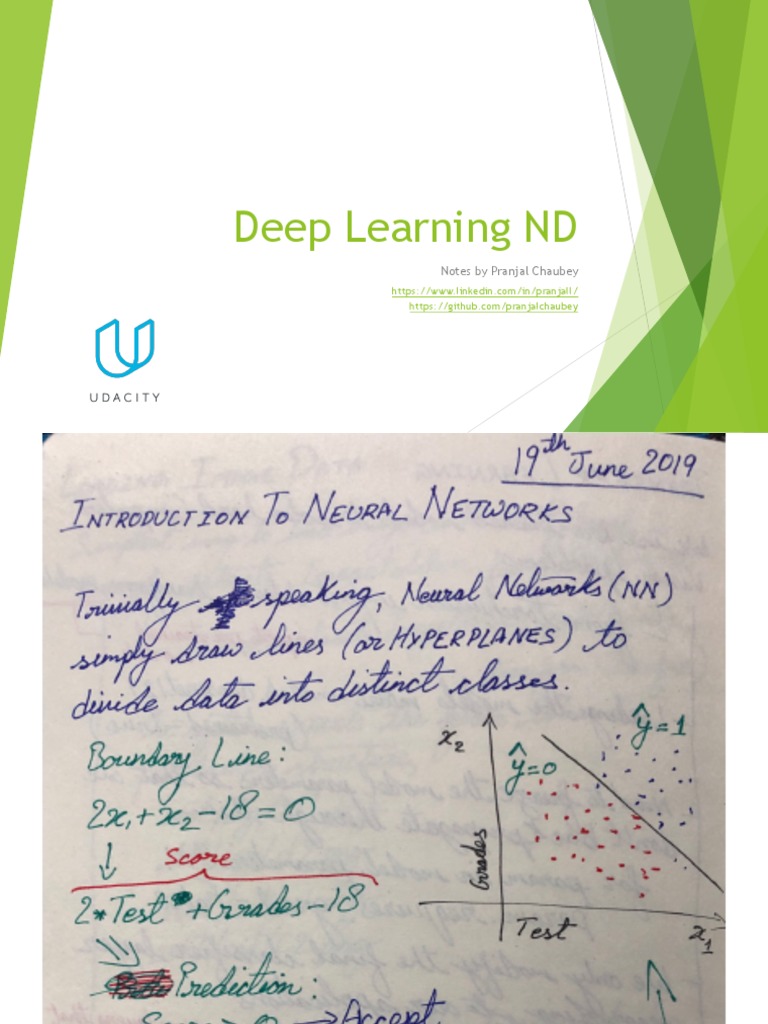 Deep Learning ND
Notes by Pranjal Chaubey
https://www.linkedin.com/in/pranjall/
https://github.com/pranjalchaubey
UDACITY
19th June 2019
INTRODUCTION TO NEURAL NETWORKS
Trivially speaking, Neural Networks (NN)
simply draw lines (or HYPERPLANES) to
divide data into distinct classes.
Boundary Line:
2x₁+x₂-18=0
Score
2*Test+Grades-18
Prediction:
Score > 0 → Accept
x₂
ŷ=0
ŷ=1
Grades
Test
x₁